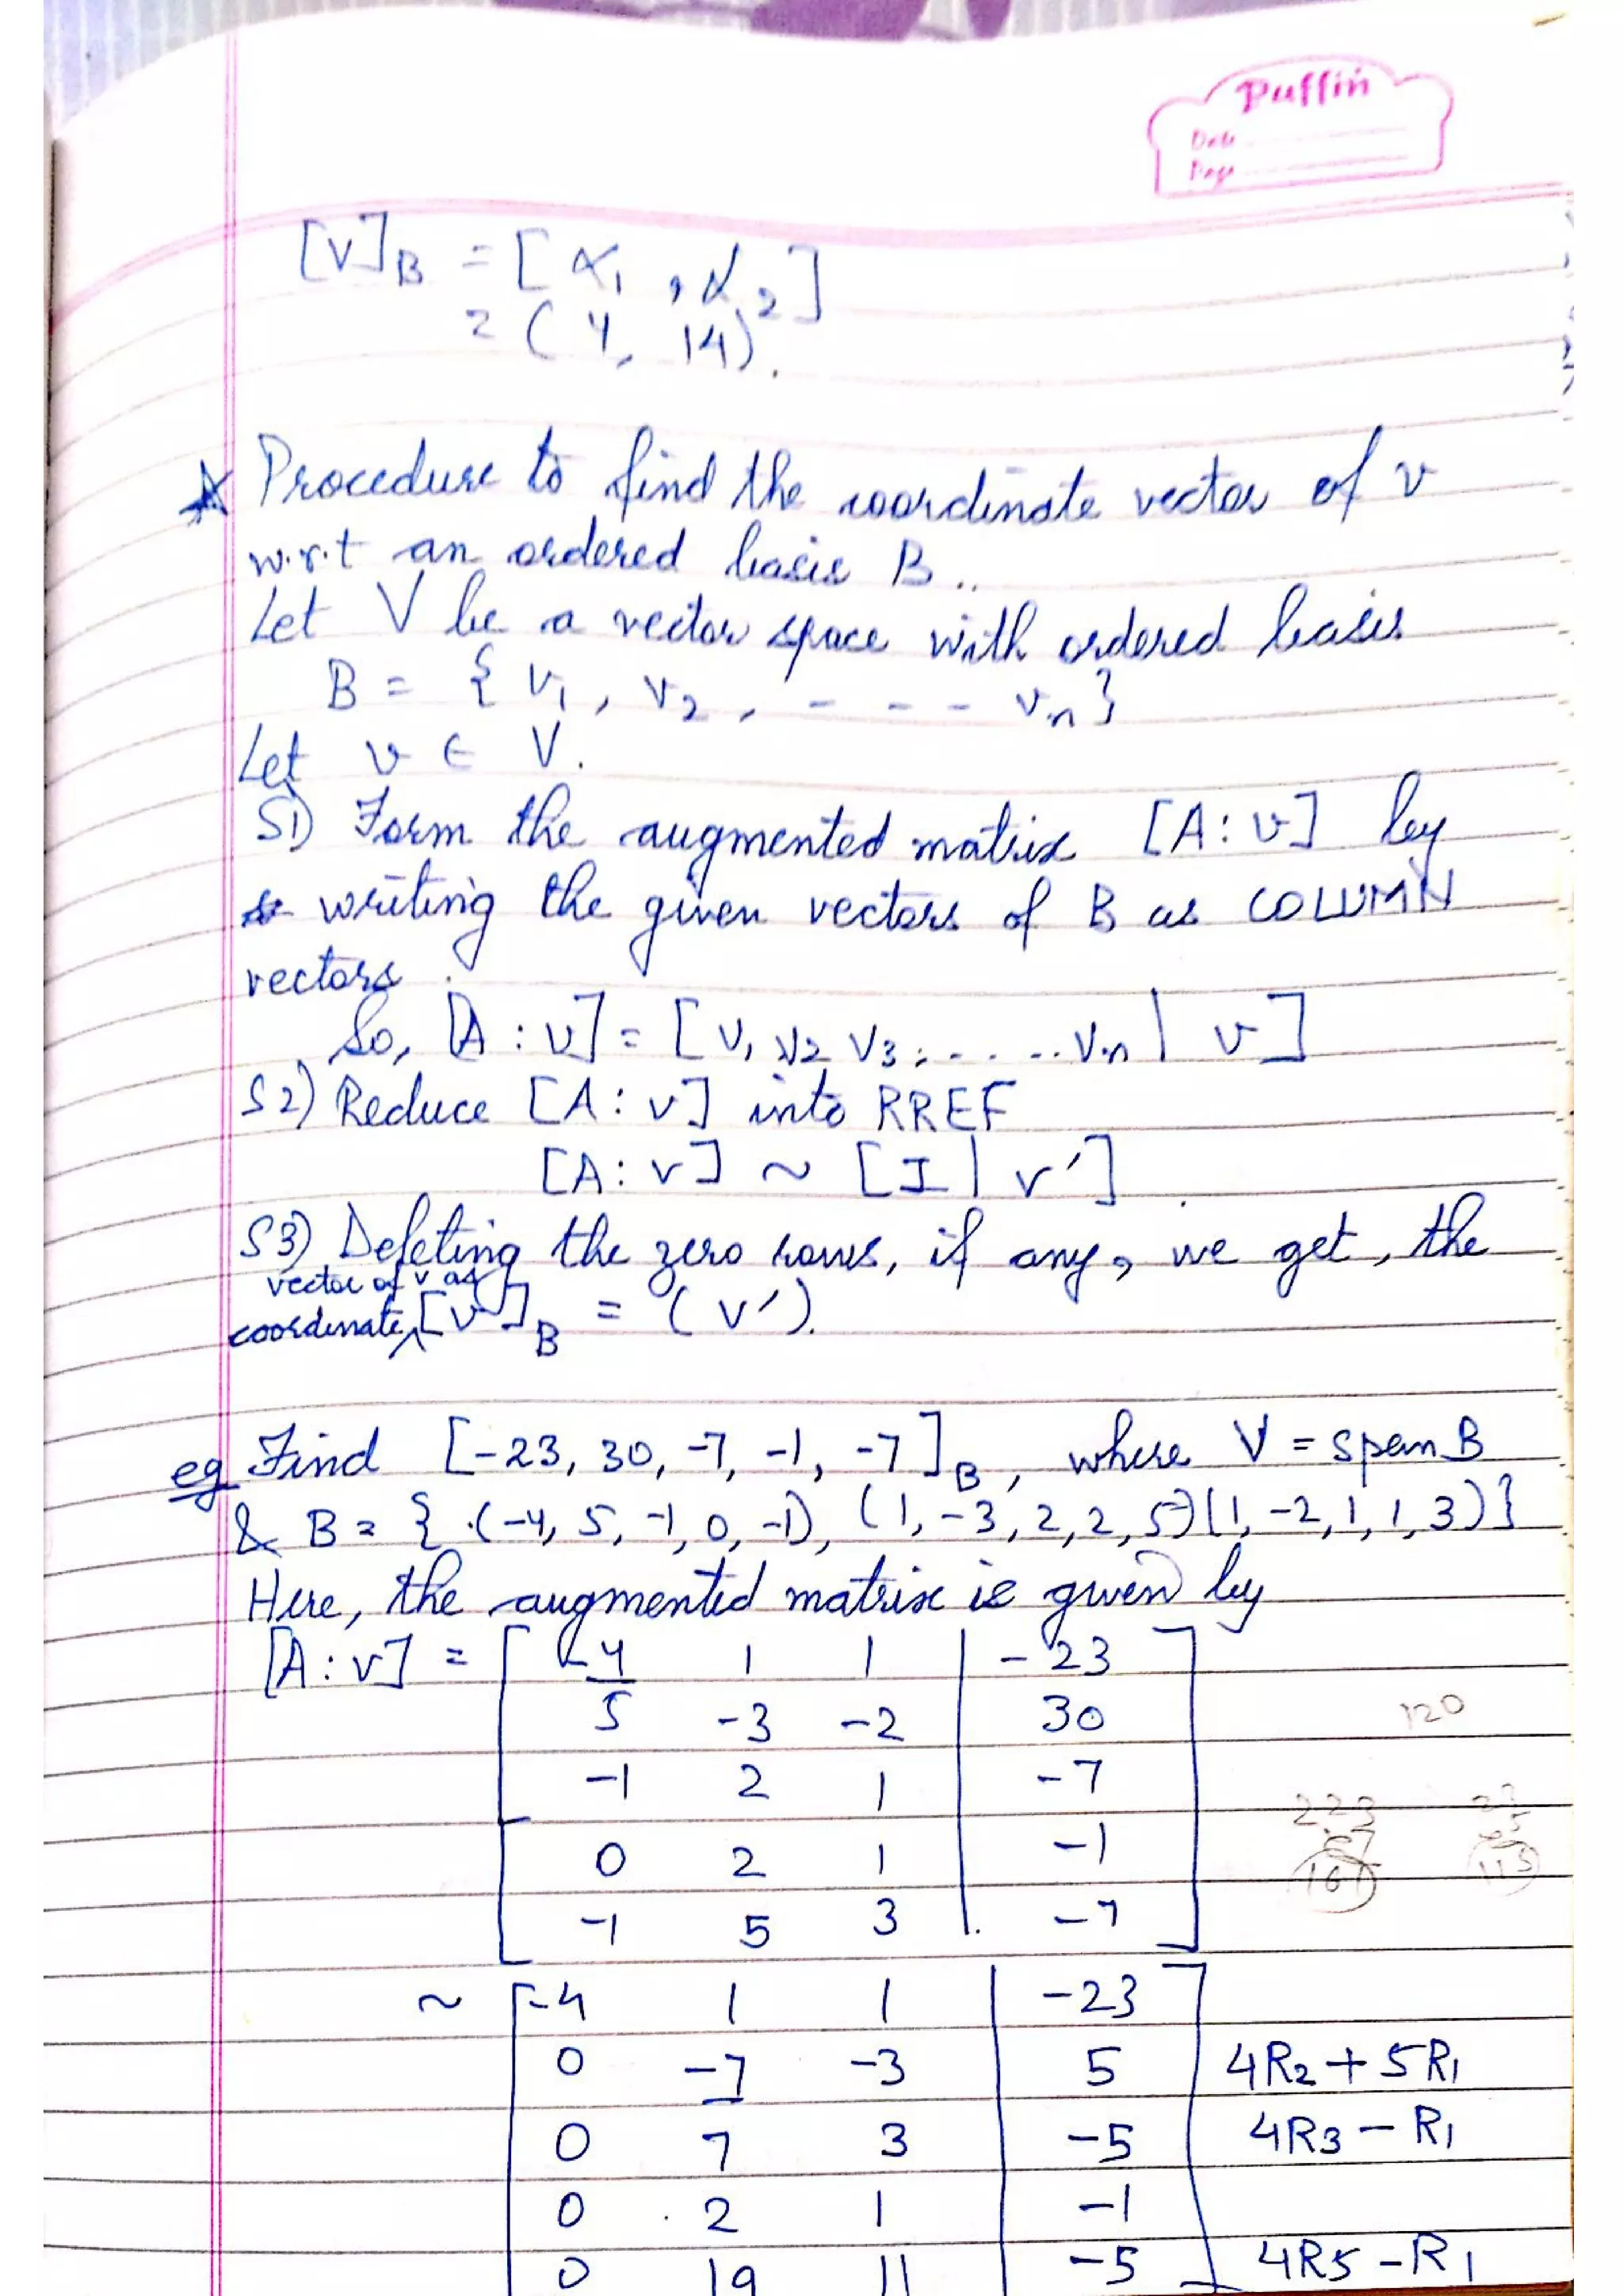 Puffin
Date
Page
[v]B = [α1, α2]
= (4, 14).
Procedure to find the coordinate vector of v
w.r.t an ordered basis B..
Let V be a vector space with ordered basis
B = { v1, v2, - - - - vn}
Let v ∈ V.
S1) Form the augmented matrix [A : v] by
writing the given vectors of B as COLUMN
vectors.
So, [A : v] = [v1 v2 v3 . . . . . vn | v]
S2) Reduce [A : v] into RREF
[A : v] ~ [I | v']
S3) Deleting the zero rows, if any, we get, the
vector of v as
coordinate [v]B = (v').
eg Find [-23, 30, -7, -1, -7]B, where V = span B
& B = { (-4, 5, -1, 0, -1), (1, -3, 2, 2, 5) (1, -2, 1, 1, 3)}
Here, the augmented matrix is given by
[A : v] = [ -4 1 1 | -23 ]
5 -3 -2 | 30
120
-1 2 1 | -7
0 2 1 | -1
-1 5 3 | -7
~ [ -4 1 1 | -23 ]
0 -7 -3 | 5 4R2 + 5R1
0 7 3 | -5 4R3 - R1
0 2 1 | -1
0 19 11 | -5 4R5 - R1